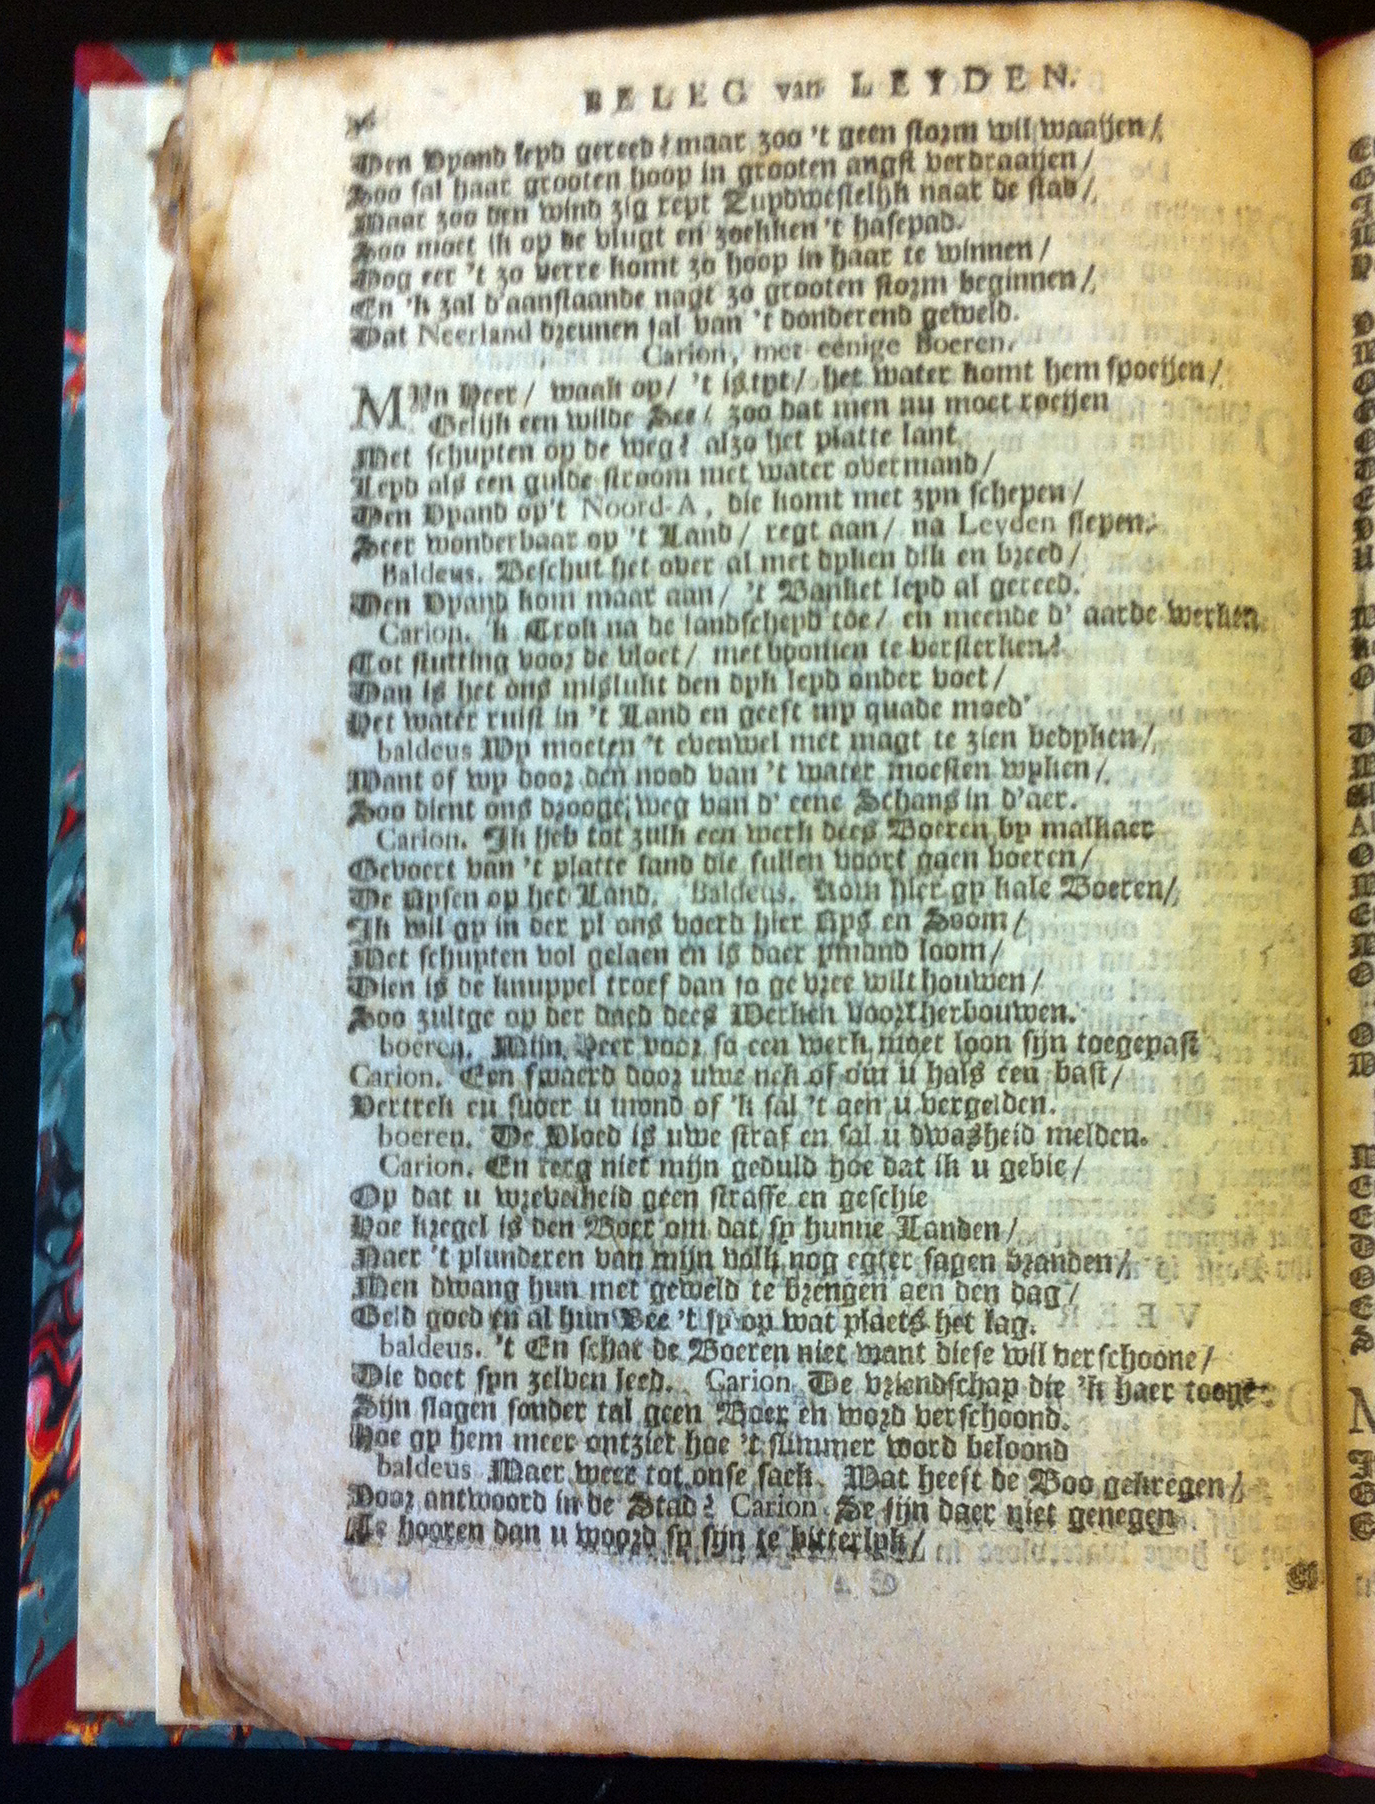 BELEG van LEYDEN.
Den Vyand leyd gereed? maar zoo 't geen storm wil waaijen/
Soo sal haar grooten hoop in grooten angst verdraaijen/
Maar zoo den wind zig rept Zuydwestelijk naar de stad/
Soo moet ik op de vlugt en zoekken 't hasepad.
Dog eer 't zo verre komt zo hoop in haar te winnen/
En 'k zal d'aanstaande nagt zo grooten storm beginnen/
Dat Neerland dreunen sal van 't donderend geweld.
Carion, met eenige Boeren.
MYn Heer/ waak op/ 't is tyt/ het water komt hem spoeijen/
Gelijk een wilde See/ zoo dat men nu moet roeijen
Met schuyten op de weg? alzo het platte lant
Leyd als een gulde stroom met water overmand/
Den Vyand op't Noord-A, die komt met zyn schepen/
Seer wonderbaar op 't Land/ regt aan/ na Leyden slepen.
Baldeus. Beschut het over al met dyken dik en breed/
Den Vyand kom maar aan/ 't Banket leyd al gereed.
Carion. 'k Trok na de landscheyd toe/ en meende d' aarde werken
Tot stutting voor de vloet/ met boomen te versterken?
Dan is het ons mislukt den dyk leyd onder voet/
Het water ruist in 't Land en geeft my quade moed'
baldeus Wy moeten 't evenwel met magt te zien bedyken/
Want of wy door den nood van 't water moesten wyken/
Soo dient ons drooge weg van d' eene Schans in d'aer.
Carion. Ik heb tot zulk een werk dees Boeren by malkaer
Gevoert van 't platte land die sullen voort gaen voeren/
De Rysen op het Land. Baldeus. Kom hier gy kale Boeren/
Ik wil gy in der yl ons voerd hier Rys en Soom/
Met schuyten vol gelaen en is daer ymand loom/
Dien is de knuppel troef dan so ge vree wilt houwen/
Soo zultge op der daed dees Werken voort herbouwen.
boeren. Mijn Heer voor so een werk moet loon sijn toegepast
Carion. Een swaerd door uwe nek of om u hals een bast/
Vertrek en snoer u mond of 'k sal 't aen u vergelden.
boeren. De Vloed is uwe straf en sal u dwasheid melden.
Carion. En terg niet mijn geduld hoe dat ik u gebie/
Op dat u wrevelheid geen straffe en geschie
Hoe kregel is den Boer om dat sy hunne Landen/
Naer 't plunderen van mijn volk nog egter sagen branden/
Men dwang hun met geweld te brengen aen den dag/
Geld goed en al hun Vee 't sy op wat plaets het lag.
baldeus. 't En schat de Boeren niet want diese wil verschoone/
Die doet syn zelven leed. Carion De vriendschap die 'k haer toone
Sijn slagen sonder tal geen Boer en word verschoond.
Hoe gy hem meer ontziet hoe 't slimmer word beloond
baldeus Maer weer tot onse saek. Wat heeft de Boo gekregen/
Voor antwoord in de Stad? Carion Se sijn daer niet genegen
Te hooren dan u woord sy sijn te bitterlyk/